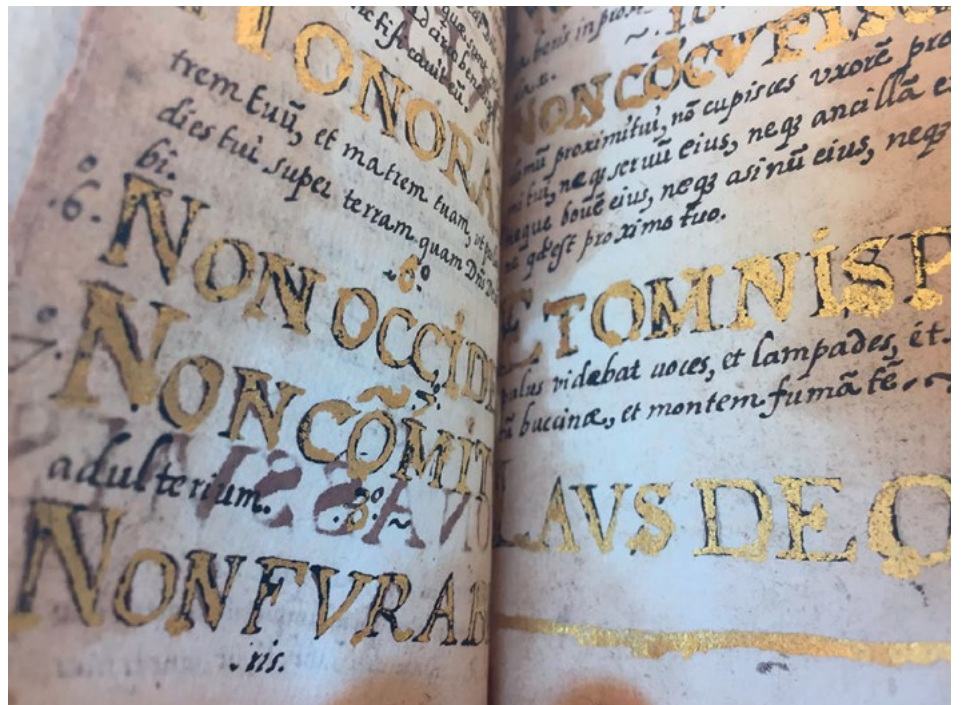 ctificauit eū.
HONORA
trem tuū, et matrem tuam, ut
dies tui super terram quam Dn̄s
bi.
.6.
.6°
NON OCCID
7.
NON CÕMIT
adulterium. .8°.~
NON FVRAB
ris.
abens in
NON CÕCVPIS
domū proximi tui, nō cupisces vxorē pro
mi tui, neqȝ seruū eius, neqȝ ancillā
neque bouē eius, neqȝ asinū eius, neqȝ
proximo tuo.
ET OMNIS P
pulus videbat uoces, et lampades, et
buccinæ, et montem fumātē.
LAVS DEO